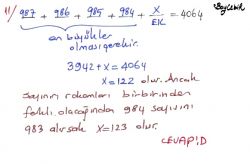 11/ 987 + 986 + 985 + 984 + X = 4064
EK
en büyükler
olması gerekir.
3942 + x = 4064
x = 122 olur. Ancak
sayının rakamları birbirinden
farklı olacağından 984 sayısını
983 alırsak x = 123 olur.
CEVAP: D